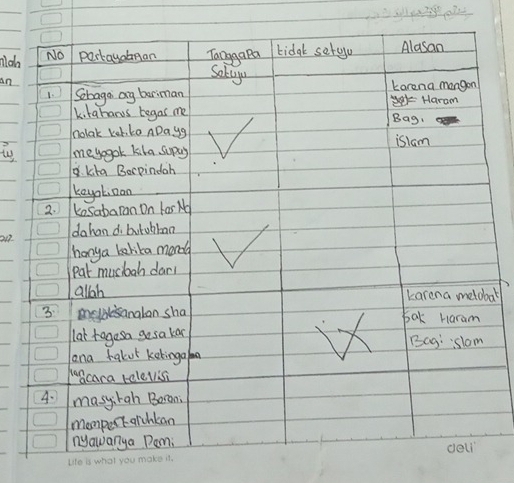 NO Pertayatanan Tanggapa tidak setuju Alasan
Setuju
1. Sebagai org beriman karena mengon
kita harus tegas me Haram
nolak ketika APa yg Bagi
meyogok kita supay islam
a kita Berpindah
keyakinan
2. kesabaran Dn tas
dahan di butuhkan
hanya ketika menda
Pat musibah dari
allah
3. sanakan sha karena melobat
lat tagesa gesa kar Haram
ana takut ketingala Bagi islam
acara televisi
4. masyitah Berani
mempertaruhkan
nyawanya Demi
Life is what you make it.
deli